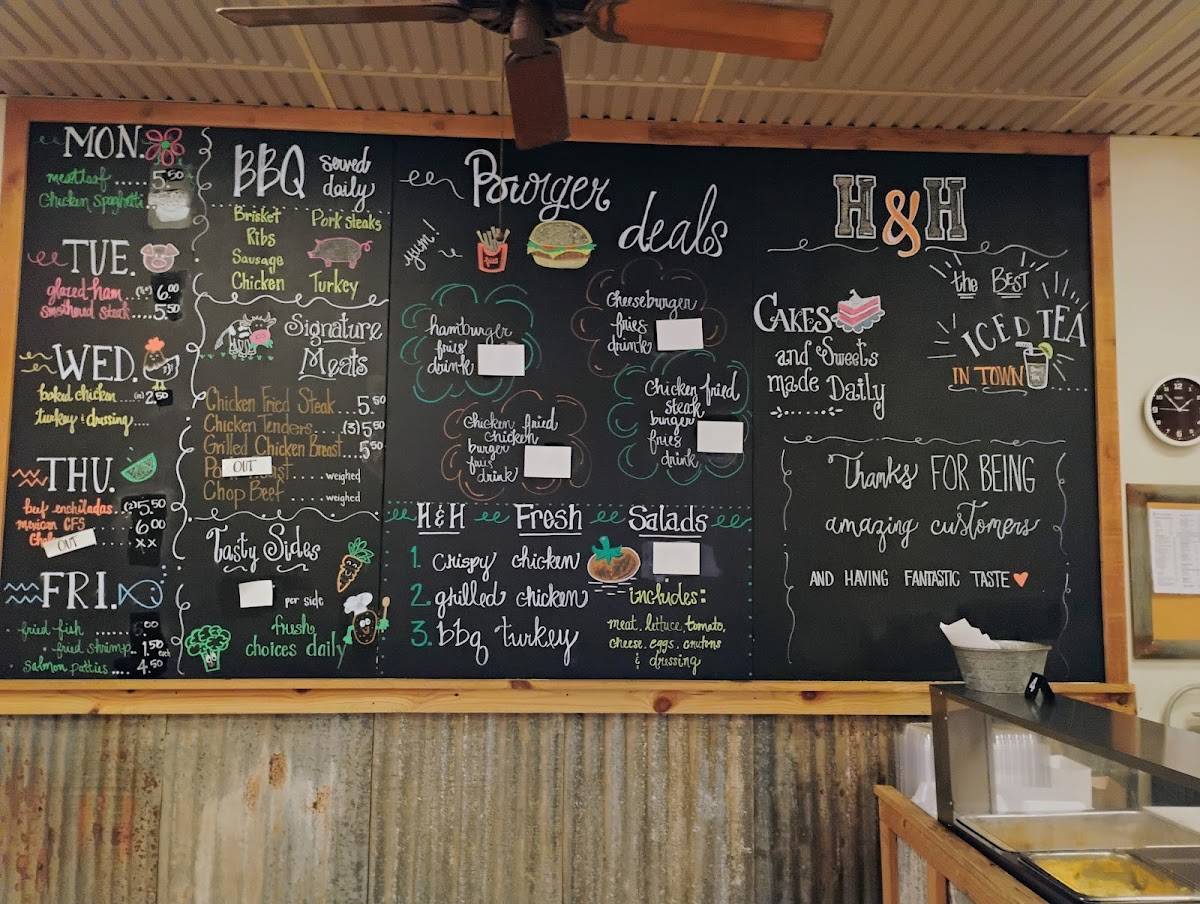 MON.
meatloaf ..... 5.50
Chicken Spaghetti
TUE.
glazed ham ... 6.00
smothered steak .... 5.50
WED.
baked chicken ... 2.50
turkey & dressing ....
THU.
beef enchiladas .. (2) 5.50
mexican CFS 6.00
OUT xx
FRI.
fried fish
fried shrimp .. 1.50 each
Salmon Patties ..... 4.50
BBQ served
daily
Brisket Pork steaks
Ribs
Sausage
Chicken Turkey
Signature
Meats
Chicken Fried Steak ... 5.50
Chicken Tenders ..... (3) 5.50
Grilled Chicken Breast .... 5.50
OUT .... weighed
Chop Beef ..... weighed
Tasty Sides
per side
fresh
choices daily
Burger
deals
yum!
hamburger
fries
drink
Cheeseburger
fries
drink
Chicken fried
chicken
burger
fries
drink
Chicken fried
steak
burger
fries
drink
H&H Fresh Salads
1. crispy chicken
2. grilled chicken
3. bbq turkey
includes:
meat, lettuce, tomato,
cheese, eggs, croutons
& dressing
H&H
the BEST
ICED TEA
IN TOWN
CAKES
and Sweets
made Daily
Thanks FOR BEING
amazing customers
AND HAVING FANTASTIC TASTE